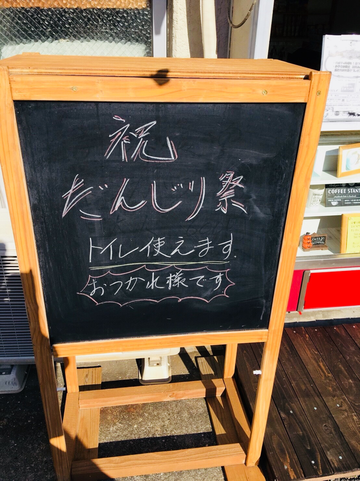 祝
だんじり祭
トイレ使えます.
おつかれ様です
COFFEE STAND